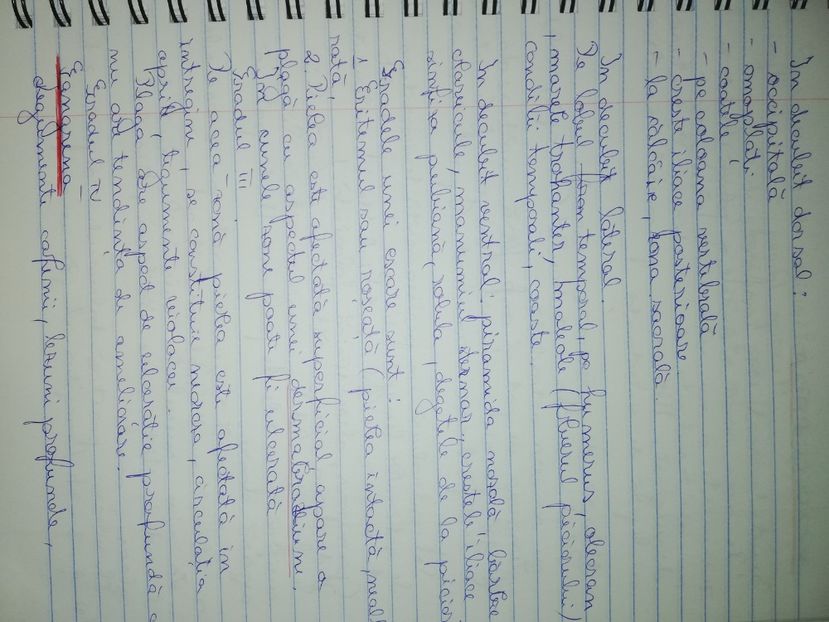 In decubit dorsal:
- occipitală
- omoplați
- coatele
- pe coloana vertebrală
- creste iliace posterioare
- la călcâie, zona sacrală
In decubit lateral
Pe lobul temporal, pe humerus, olecran
, marele trohanter, maleole (fluierul piciorului)
condilii temporali, coaste.
In decubit ventral: piramida nazală bărbie
clavicule, manumiul sternar, crestele iliace
simfiza pubiană, rotula, degetele de la picior
Gradele unei escare sunt:
1. Eritemul sau roșeață (pielea intactă, nealte
rată,
2. Pielea este afectată superficial apare o
plagă cu aspectul unei dermabraziuni.
În unele zone poate fi ulcerată
Gradul III
Pe acea zonă pielea este afectată în
întregime, se constituie necroza, circulația
aprit, tegumente violacei.
Plaga are aspect de ulcerație profundă c
nu are tendința de ameliorare.
Gradul IV
Gangrena
tegumente cafenii, leziuni profunde,